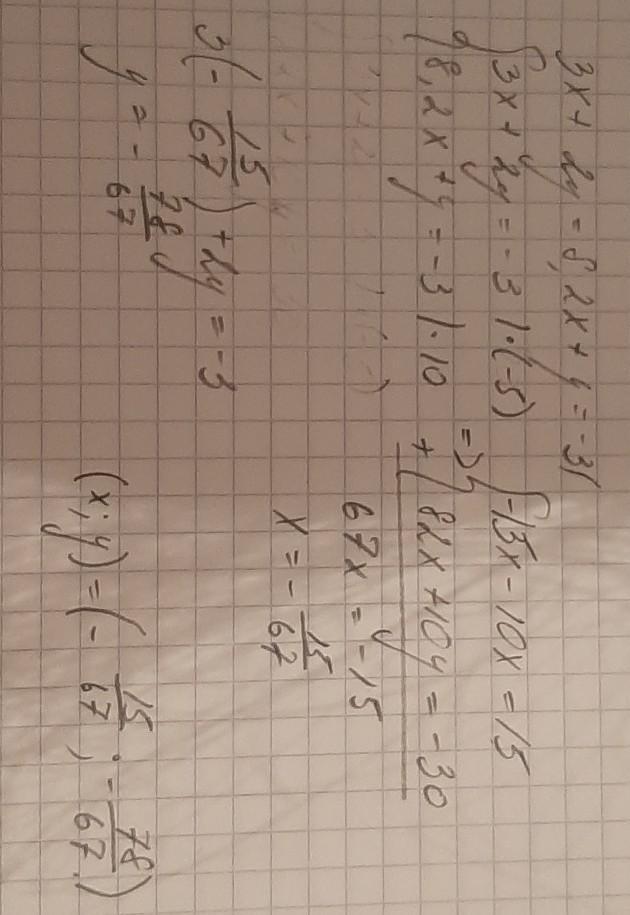 3x + 2y = 8,2x + y = -3
{3x + 2y = -3 | · (-5)
{8,2x + y = -3 | · 10
=> {-15x - 10x = 15
+ {82x + 10y = -30
67x = -15
x = - 15/67
3(- 15/67) + 2y = -3
y = - 78/67
(x; y) = (- 15/67; - 78/67)